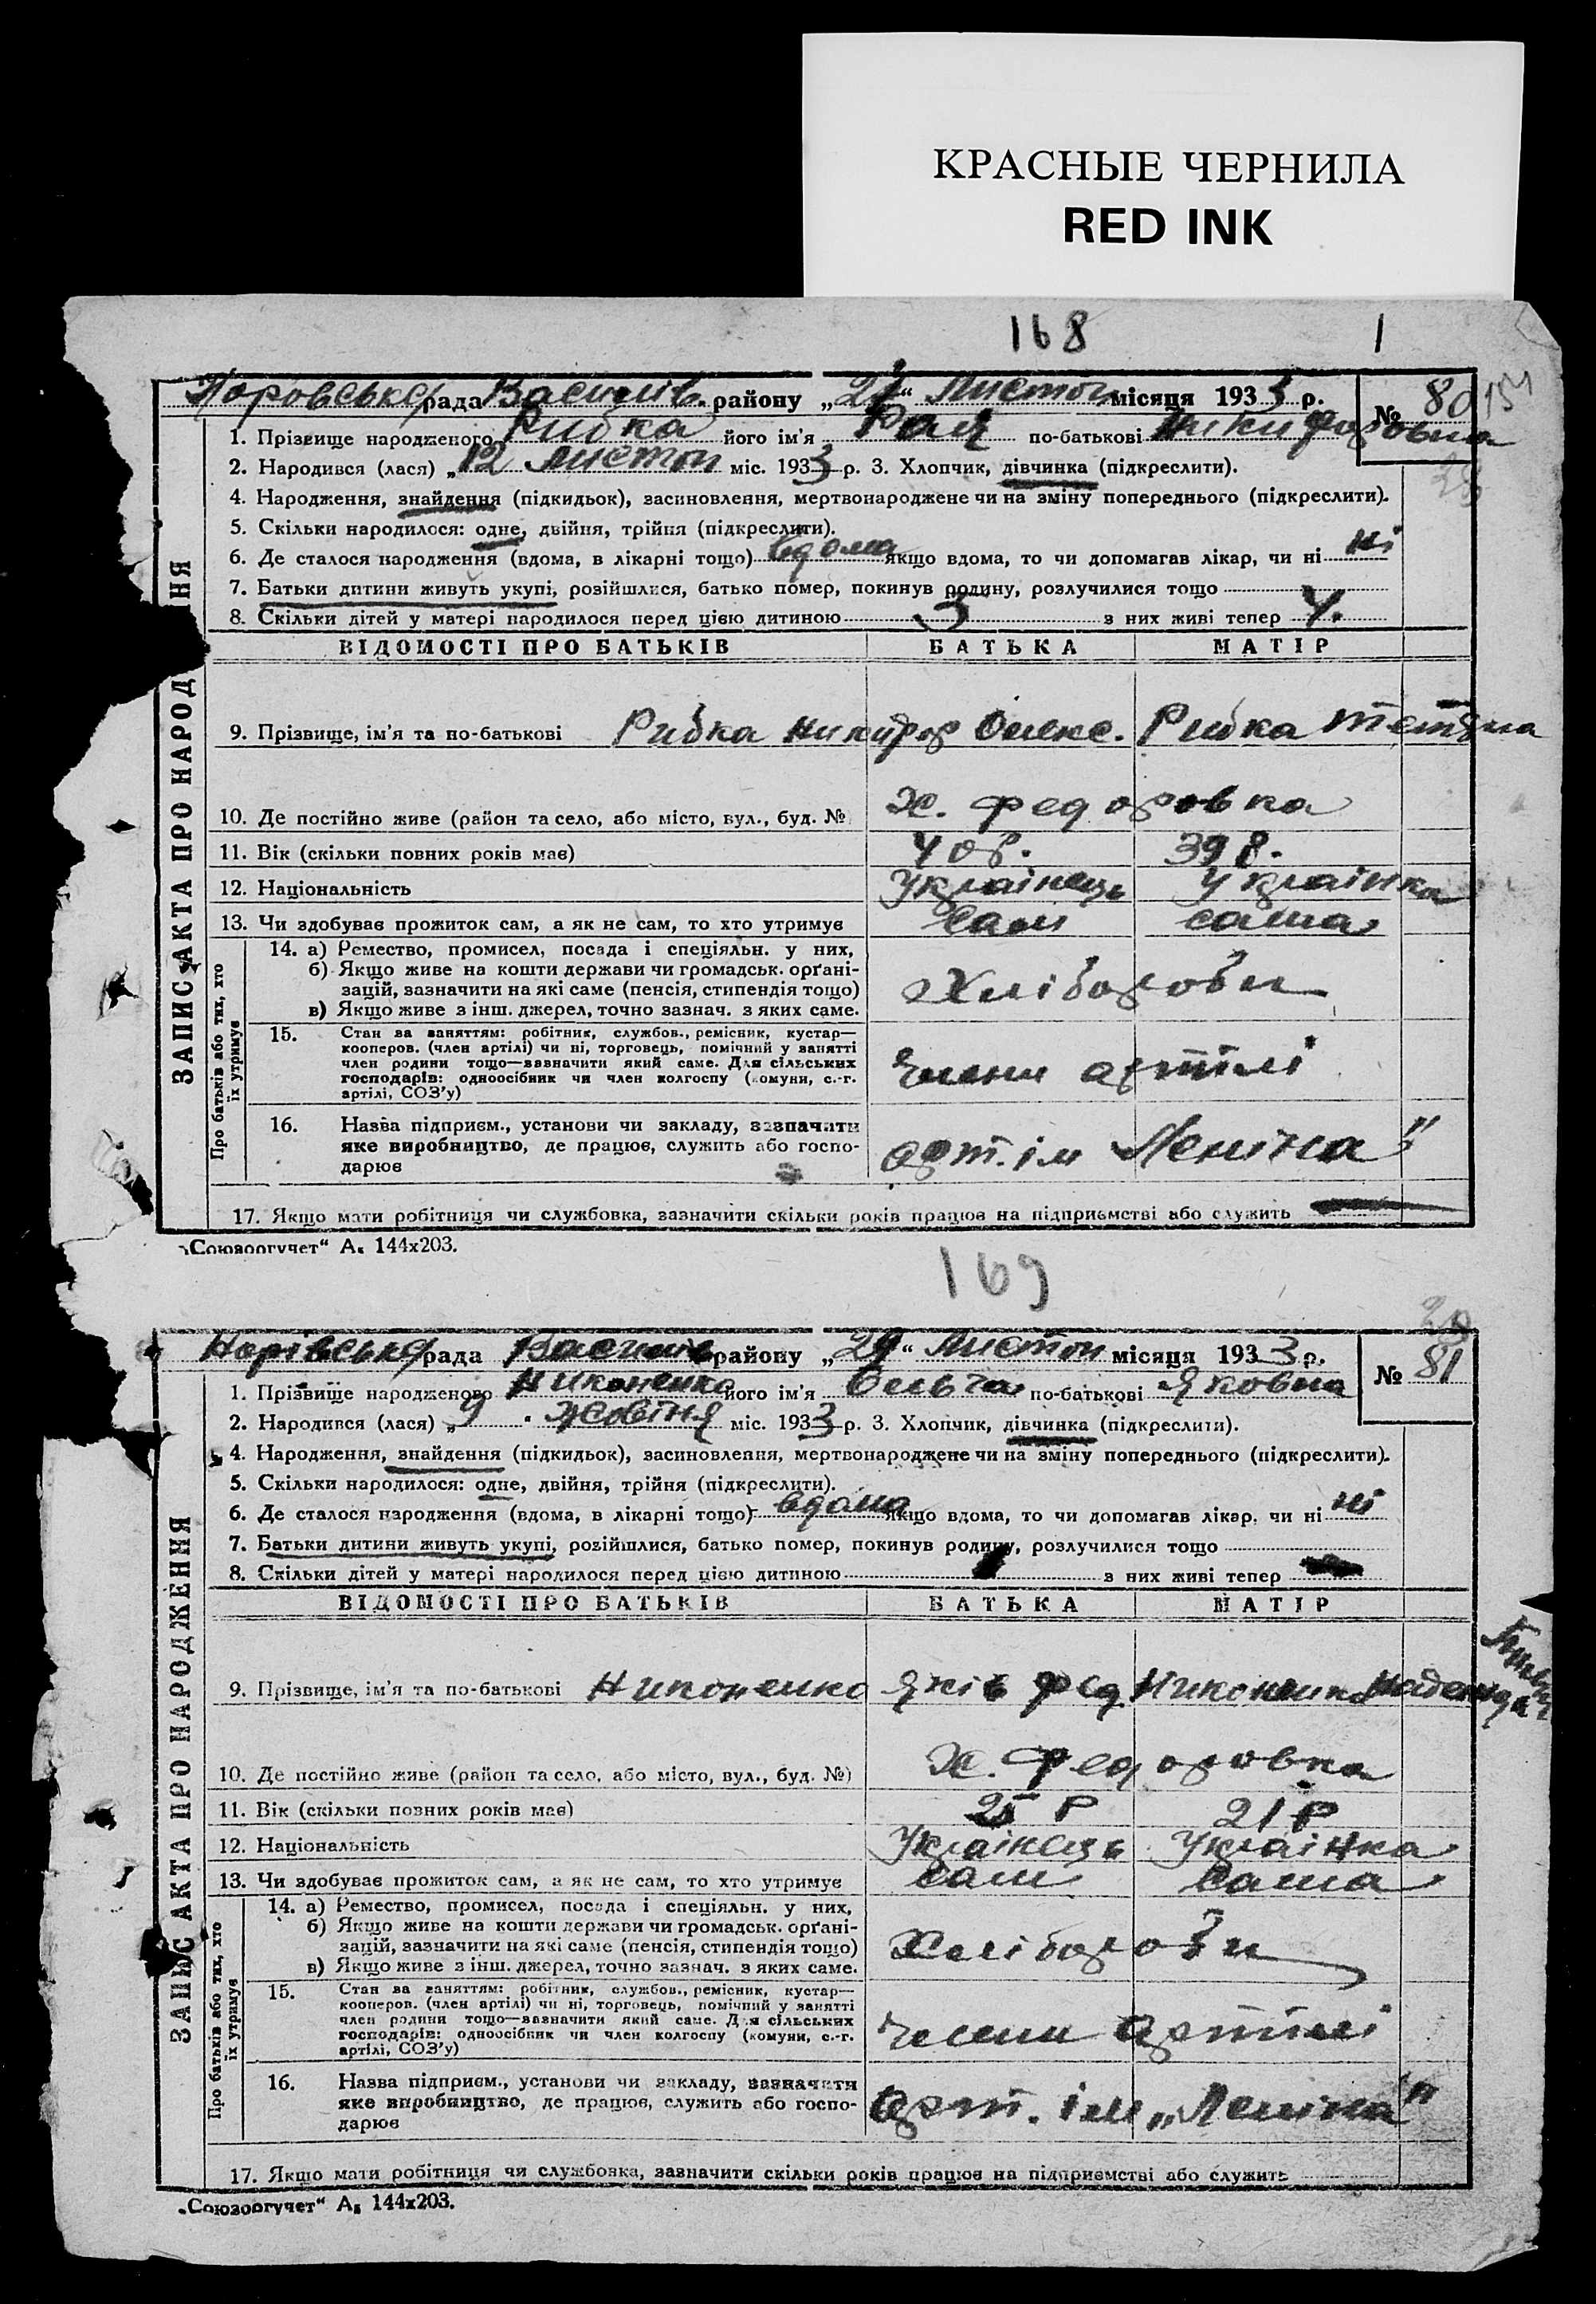 КРАСНЫЕ ЧЕРНИЛА
RED INK
168 1
рада Василів. району „27“ Листоп місяця 1933 р. № 80
1. Прізвище народженого Рибка його ім'я Рая по-батькові Никифоровна
2. Народився (лася) „12 листоп міс. 1933 р. 3. Хлопчик, дівчинка (підкреслити).
4. Народження, знайдення (підкидьок), засиновлення, мертвонароджене чи на зміну попереднього (підкреслити).
5. Скільки народилося: одне, двійня, трійня (підкреслити).
6. Де сталося народження (вдома, в лікарні тощо) вдома якщо вдома, то чи допомагав лікар, чи ні ні
7. Батьки дитини живуть укупі, розійшлися, батько помер, покинув родину, розлучилися тощо
8. Скільки дітей у матері народилося перед цією дитиною 3 з них живі тепер 4.
ВІДОМОСТІ ПРО БАТЬКІВ БАТЬКА МАТІР
9. Прізвище, ім'я та по-батькові Рибка Никифор Олекс. Рибка Тетяна
10. Де постійно живе (район та село, або місто, вул., буд. № х. Федоровка
11. Вік (скільки повних років має) 40 р. 39 р.
12. Національність Українець Українка
13. Чи здобуває прожиток сам, а як не сам, то хто утримує Сам сама
14. а) Ремество, промисел, посада і спеціяльн. у них,
б) Якщо живе на кошти держави чи громадськ. орґані-
зацій, зазначити на які саме (пенсія, стипендія тощо)
в) Якщо живе з інш. джерел, точно зазнач. з яких саме.
Хлібороби
15. Стан за заняттям: робітник, службов., ремісник, кустар—
кооперов. (член артілі) чи ні, торговець, помічний у занятті
член родини тощо—зазначити який саме. Для сільських
господарів: одноосібник чи член колгоспу (комуни, с.-г.
артілі, СОЗ'у)
Члени артілі
16. Назва підприєм., установи чи закладу, зазначити
яке виробництво, де працює, служить або госпо-
дарює
арт. ім Леніна"
17. Якщо мати робітниця чи службовка, зазначити скільки років працює на підприємстві або служить
ЗАПИС АКТА ПРО НАРОД НЯ
Про батьків або тих, хто
їх утримує
„Союзоргучет“ А₅ 144х203.
169
рада Василів району „29“ Листоп місяця 1933 р. № 81
1. Прізвище народженого Никоненко його ім'я Ольга по-батькові Яковна
2. Народився (лася) „9 . Жовтня міс. 1933 р. 3. Хлопчик, дівчинка (підкреслити).
4. Народження, знайдення (підкидьок), засиновлення, мертвонароджене чи на зміну попереднього (підкреслити).
5. Скільки народилося: одне, двійня, трійня (підкреслити).
6. Де сталося народження (вдома, в лікарні тощо) вдома якщо вдома, то чи допомагав лікар, чи ні ні
7. Батьки дитини живуть укупі, розійшлися, батько помер, покинув родину, розлучилися тощо
8. Скільки дітей у матері народилося перед цією дитиною з них живі тепер
ВІДОМОСТІ ПРО БАТЬКІВ БАТЬКА МАТІР
9. Прізвище, ім'я та по-батькові Никоненко Яків Фед Никоненко Надежда
10. Де постійно живе (район та село, або місто, вул., буд. №) х. Федоровка
11. Вік (скільки повних років має) 25 Р 21 Р
12. Національність Українець Українка
13. Чи здобуває прожиток сам, а як не сам, то хто утримує сам сама
14. а) Ремество, промисел, посада і спеціяльн. у них,
б) Якщо живе на кошти держави чи громадськ. орґані-
зацій, зазначити на які саме (пенсія, стипендія тощо)
в) Якщо живе з інш. джерел, точно зазнач. з яких саме.
Хлібороби
15. Стан за заняттям: робітник, службов., ремісник, кустар—
кооперов. (член артілі) чи ні, торговець, помічний у занятті
член родини тощо—зазначити який саме. Для сільських
господарів: одноосібник чи член колгоспу (комуни, с.-г.
артілі, СОЗ'у)
Члени артілі
16. Назва підприєм., установи чи закладу, зазначити
яке виробництво, де працює, служить або госпо-
дарює
Арт. ім „Леніна"
17. Якщо мати робітниця чи службовка, зазначити скільки років працює на підприємстві або служить
ЗАПИС АКТА ПРО НАРОДЖЕННЯ
Про батьків або тих, хто
їх утримує
„Союзоргучет“ А₅ 144х203.